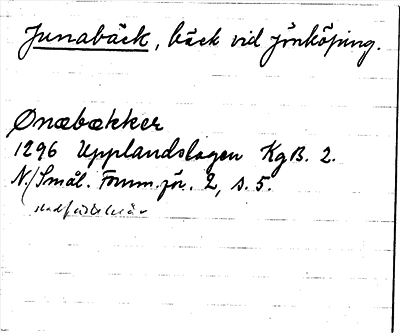 Junabäck, bäck vid Jönköping.
Ønæbækker
1296 Upplandslagen KgB. 2.
N. Smål. Fornm.för. 2, s. 5.